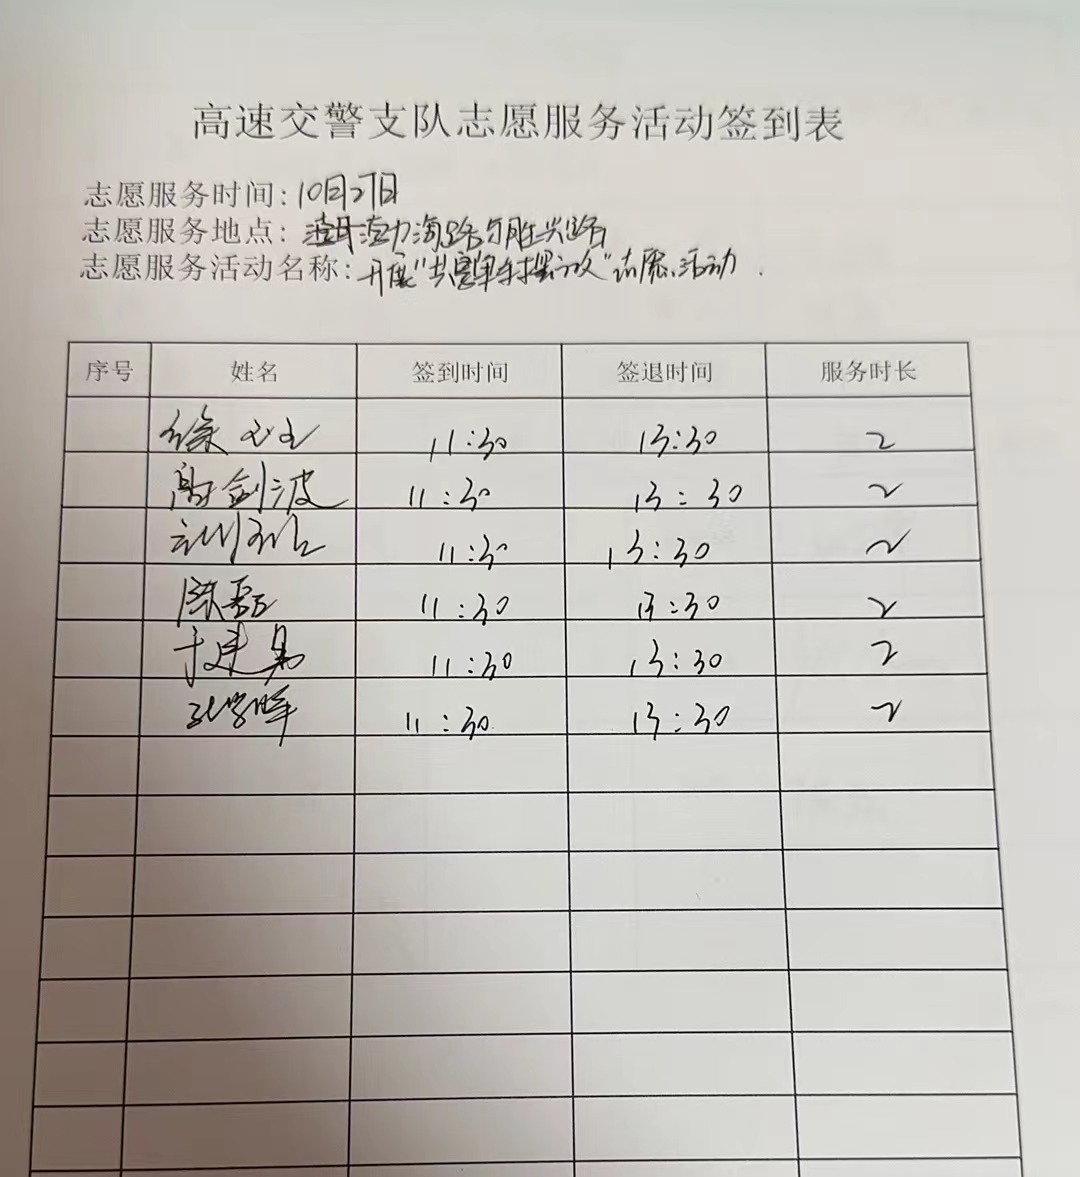 高速交警支队志愿服务活动签到表
志愿服务时间:10月27日
志愿服务地点:路与胜兴路
志愿服务活动名称:开展"共享单车摆放"志愿活动.
序号 姓名 签到时间 签退时间 服务时长
徐 11:30 13:30 2
剑波 11:30 13:30 2
11:30 13:30 2
陈磊 11:30 13:30 2
于建勇 11:30 13:30 2
11:30 13:30 2